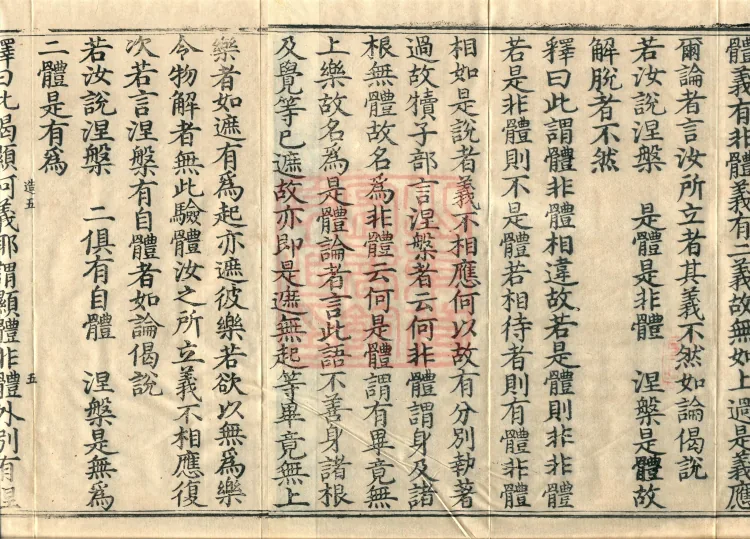 體義有非體義有二義故無如上過是義應
爾論者言汝所立者其義不然如論偈說
若汝說涅槃　是體是非體　涅槃是體故
解脫者不然
釋曰此謂體非體相違故若是體則非非體
若是非體則不是體若相待者則有體非體
相如是說者義不相應何以故有分別執著
過故犢子部言涅槃者云何非體謂身及諸
根無體故名為非體云何是體謂有畢竟無
上樂故名為是體論者言此語不善身諸根
及覺等已遮故亦即是遮無起等畢竟無上
樂者如遮有為起亦遮彼樂若欲以無為樂
令物解者無此驗體汝之所立義不相應復
次若言涅槃有自體者如論偈說
若汝說涅槃　二俱有自體　涅槃是無為
二體是有為
造五
五
釋曰此偈顯何義耶謂顯體非體外別有涅